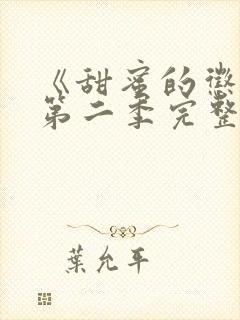 《甜蜜的懲
第二季完整
葉允平